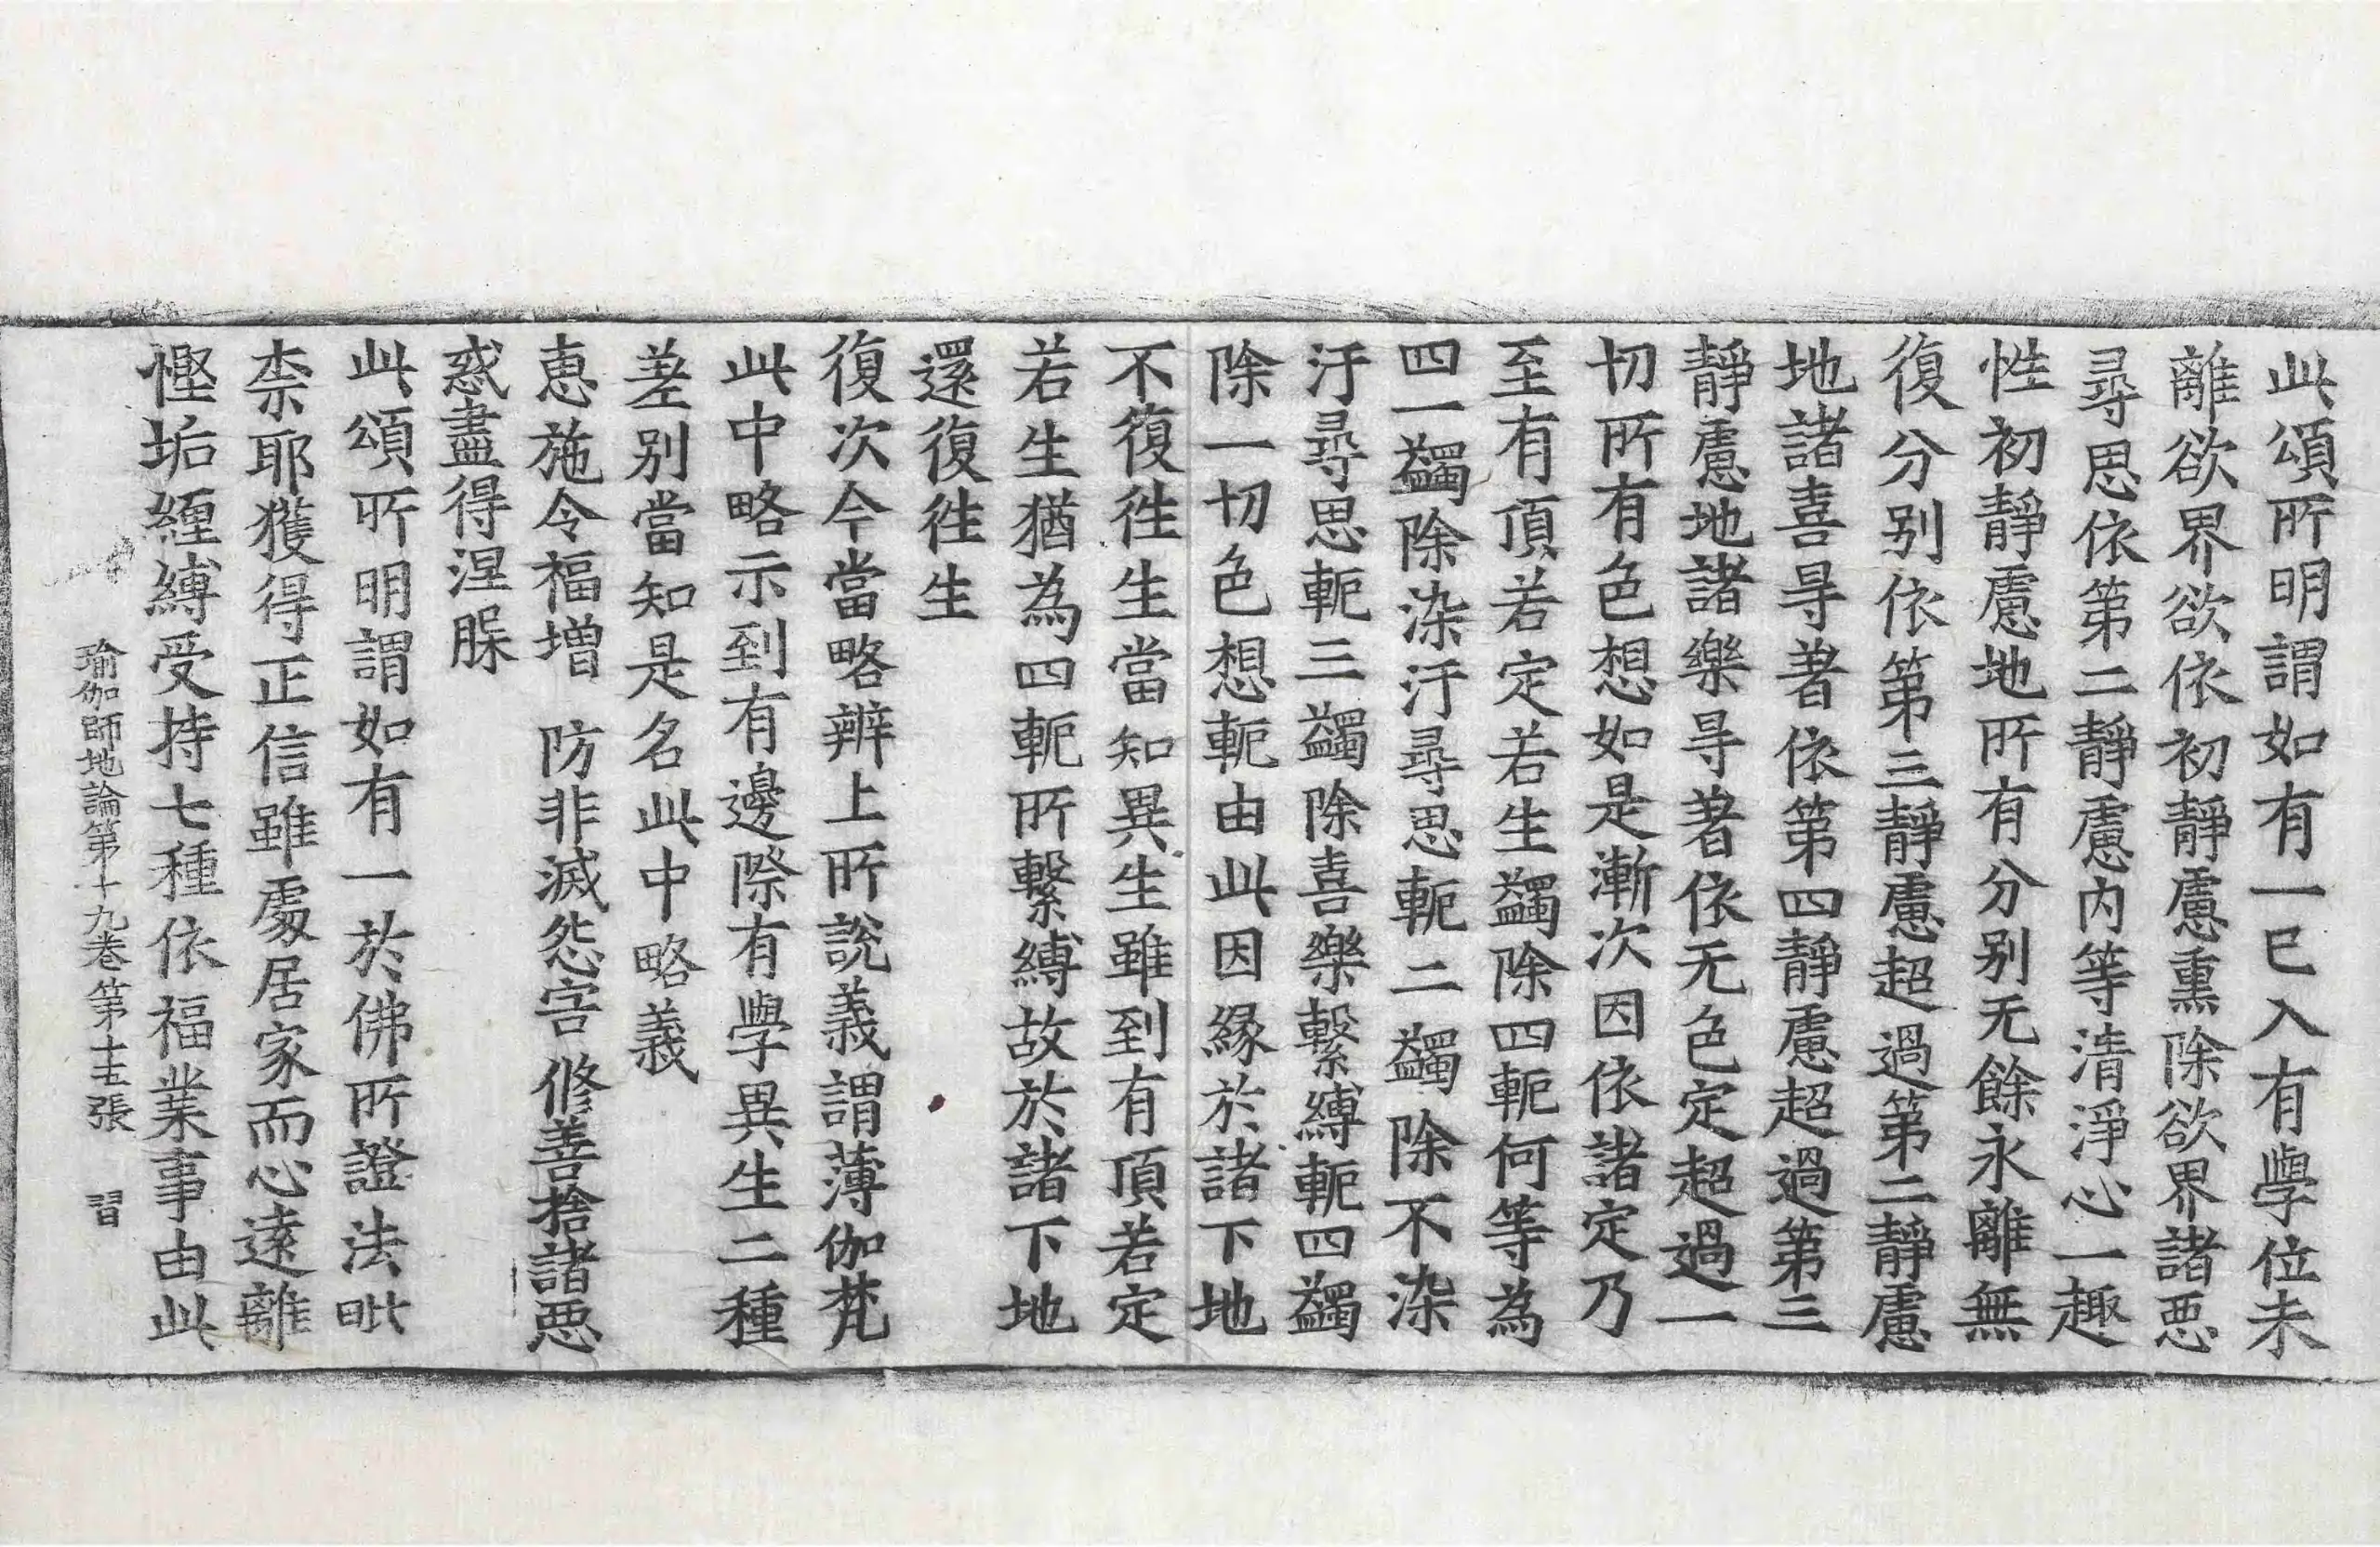 此頌所明謂如有一已入有學位未
離欲界欲依初靜慮熏除欲界諸惡
尋思依第二靜慮內等清淨心一趣
性初靜慮地所有分别无餘永離無
復分别依第三靜慮超過第二靜慮
地諸喜㝵著依第四靜慮超過第三
靜慮地諸樂㝵著依无色定超過一
切所有色想如是漸次因依諸定乃
至有頂若定若生蠲除四軛何等為
四一蠲除染汙尋思軛二蠲除不染
汙尋思軛三蠲除喜樂繫縛軛四蠲
除一切色想軛由此因緣於諸下地
不復徃生當知異生雖到有頂若定
若生猶為四軛所繫縛故於諸下地
還復徃生
復次今當略辨上所說義謂薄伽梵
此中略示到有邊際有學異生二種
差别當知是名此中略義
恵施令福增 防非滅怨害 修善捨諸惡
惑盡得涅槃
此頌所明謂如有一於佛所證法毗
柰耶獲得正信雖處居家而心遠離
慳垢纏縛受持七種依福業事由此
瑜伽師地論第十九卷第十五張 習